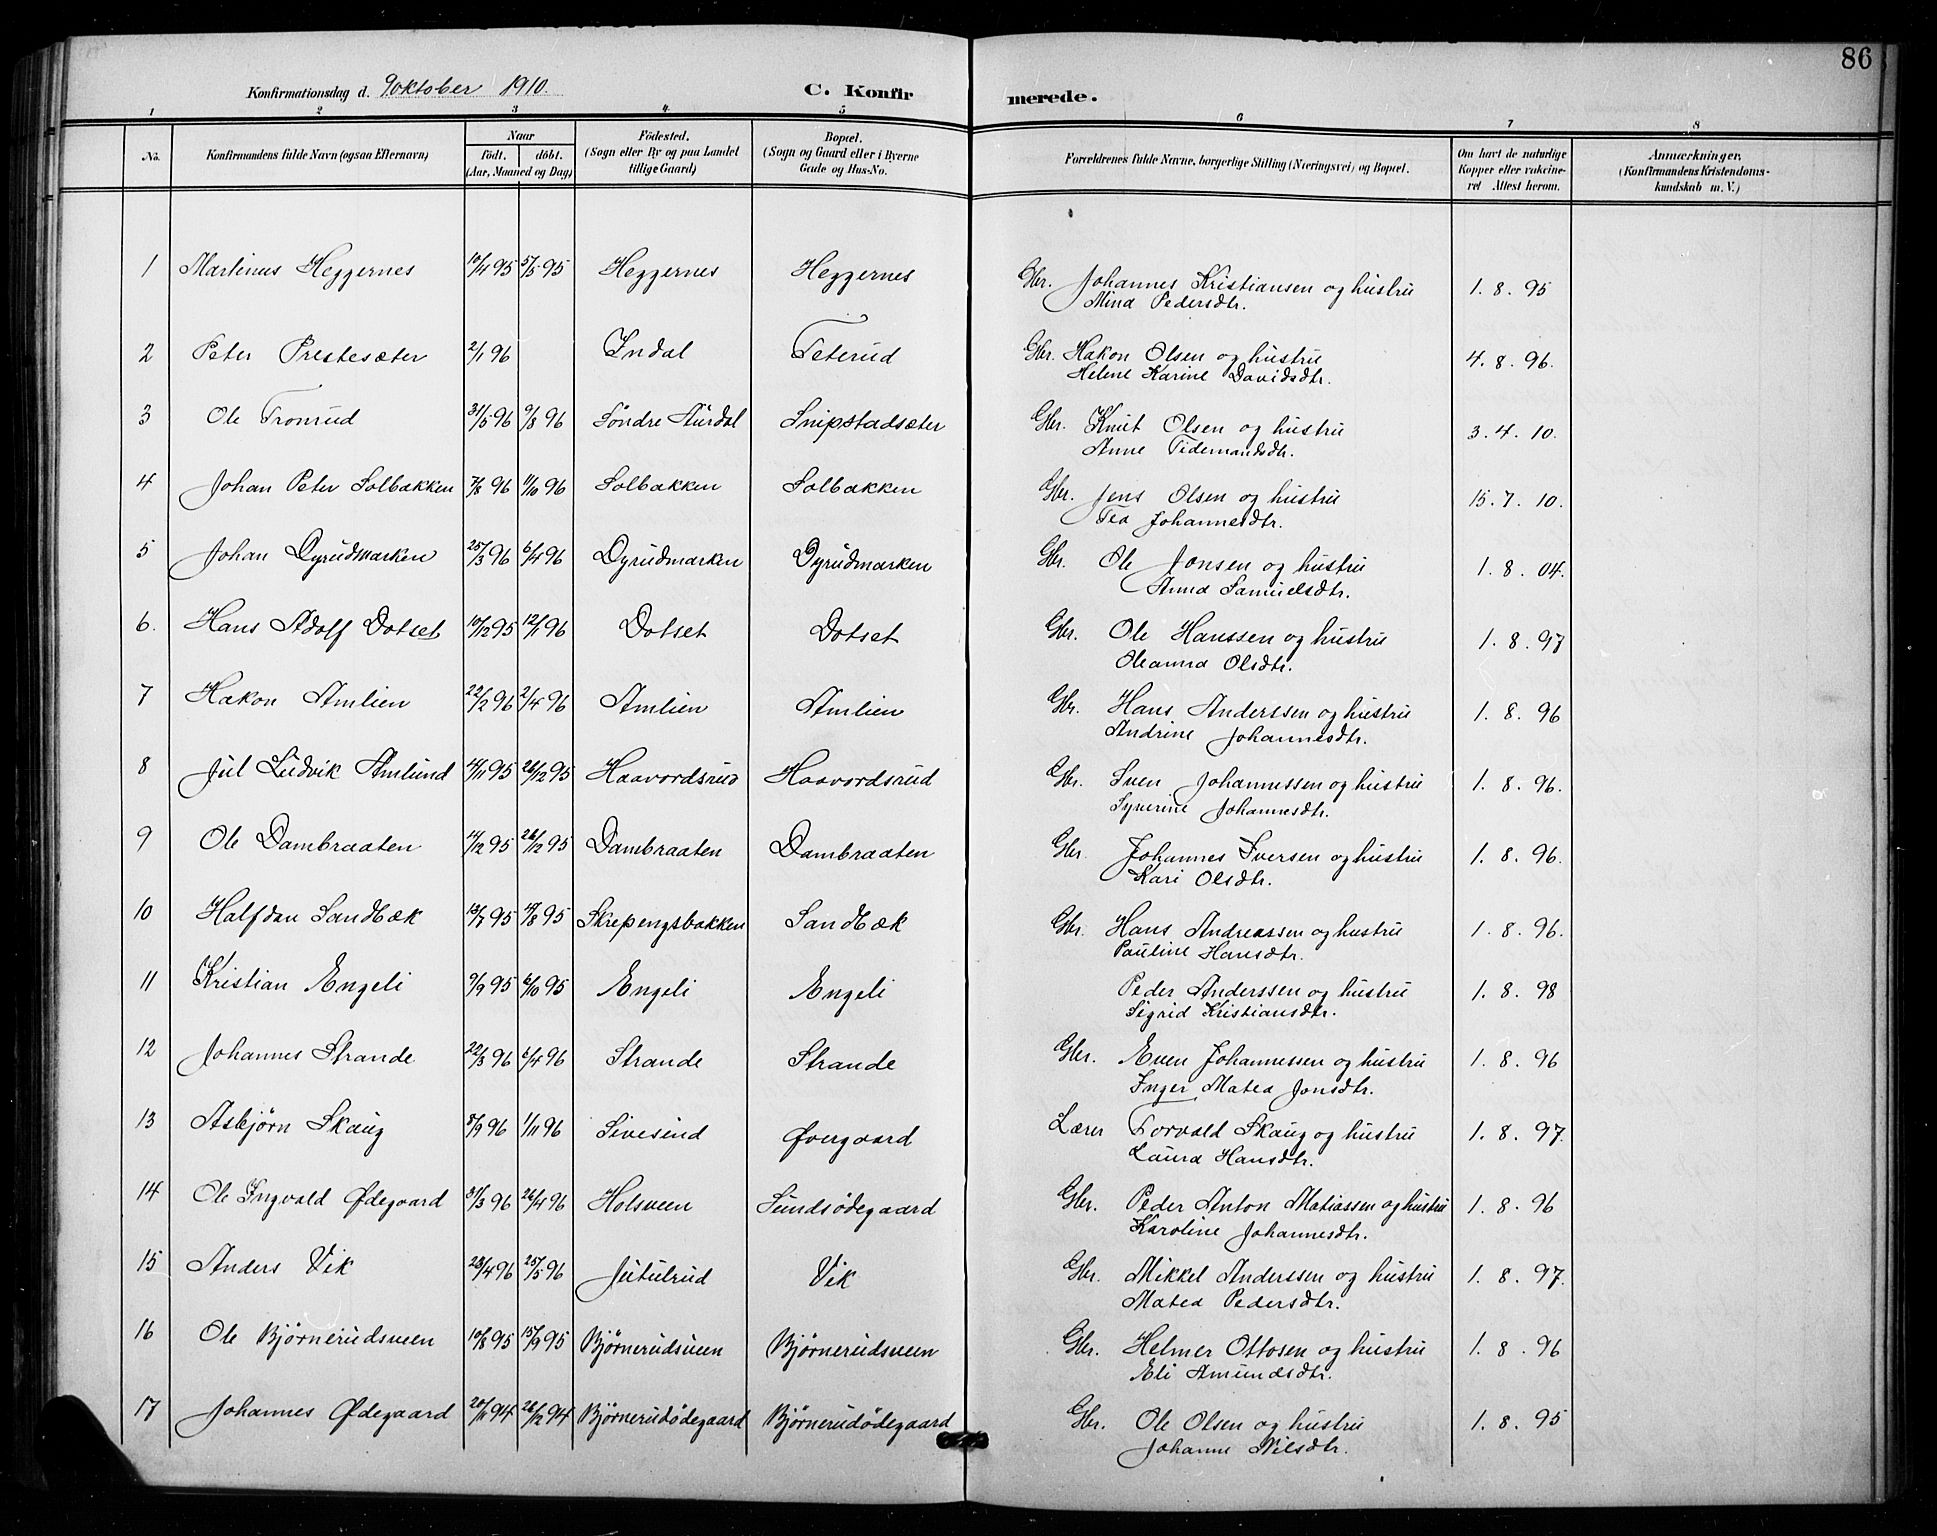 86
Konfirmationsdag d. 9 oktober 1910. C. Konfir merede.
1 2 3 4 5 6 7 8
No. Konfirmandens fulde Navn (ogsaa Efternavn) Naar födt. döbt. (Aar, Maaned og Dag) Födested. (Sogn eller By og paa Landet tillige Gaard) Bopæl. (Sogn og Gaard eller i Byerne Gade og Hus-No. Forældrenes fulde Navne, borgerlige Stilling (Næringsvei) og Bopæl. Om havt de naturlige Kopper eller vakcineret Attest herom. Anmærkninger. (Konfirmandens Kristendomskundskab m. V.)
1 Martinus Heggernes 10/4 95 5/5 95 Heggernes Heggernes Gbr. Johannes Kristiansen og hustru 1. 8. 95
Mina Pedersdtr.
2 Peter Prestesæter 2/1 96 Indal Teterud Gbr. Hakon Olsen og hustru 4. 8. 96.
Helene Karine Davidsdtr.
3 Ole Tronrud 31/5 96 9/8 96 Söndre Aurdal Snipstadsæter Gbr. Knut Olsen og hustru 3. 4. 10.
Anne Tidemandsdtr.
4 Johan Peter Solbakken 7/8 96 11/10 96 Solbakken Solbakken Gbr. Jens Olsen og hustru 15. 7. 10.
Tea Johannesdtr.
5 Johan Dyrudmarken 25/3 96 6/4 96 Dyrudmarken Dyrudmarken Gbr. Ole Jonsen og hustru 1. 8. 04.
Anna Samuelsdtr.
6. Hans Adolf Dotset 10/12 95 12/1 96 Dotset Dotset Gbr. Ole Hanssen og hustru 1. 8. 97
Oleanna Olsdtr.
7 Hakon Amlien 22/2 96 2/4 96 Amlien Amlien Gbr. Hans Anderssen og hustru 1. 8. 96
Andrine Johannesdtr.
8 Jul Ludvik Amlund 4/11 95 26/12 95 Haavordsrud Haavordsrud Gbr. Sven Johannessen og hustru 1. 8. 96.
Syverine Johannesdtr.
9 Ole Dambraaten 11/12 95 26/12 95 Dambraaten Dambraaten Gbr. Johannes Iversen og hustru 1. 8. 96.
Kari Olsdtr.
10 Halfdan Sandbæk 13/7 95 18/8 95 Skrepengsbakken Sandbæk Gbr. Hans Andreassen og hustru 1. 8. 96.
Pauline Hansdtr.
11 Kristian Engeli 9/9 95 6/10 95 Engeli Engeli Peder Anderssen og hustru 1. 8. 98
Sigrid Kristiansdtr.
12 Johannes Strande 22/3 96 6/4 96 Strande Strande Gbr. Even Johannessen og hustru 1. 8. 96
Inger Matea Jonsdtr.
13 Asbjørn Skaug 8/9 96 1/11 96 Sivesind Øvergaard Lærer Torvald Skaug og hustru 1. 8. 97.
Laura Hansdtr.
14 Ole Ingvald Ødegaard 31/3 96 26/4 96 Holsveen Sundsödegaard Gbr. Peder Anton Matiassen og hustru 1. 8. 96
Karoline Johannesdtr.
15 Anders Vik 23/4 96 25/5 96 Jutulrud Vik Gbr. Mikkel Anderssen og hustru 1. 8. 97.
Matea Pedersdtr.
16 Ole Bjørnerudsveen 10/8 95 15/9 95 Bjørnerudsveen Bjørnerudsveen Gbr. Helmer Ottosen og hustru 1. 8. 96
Eli Amundsdtr.
17 Johannes Ødegaard 20/11 94 26/12 94 Bjørnerudödegaard Bjørnerudödegaard Gbr. Ole Olsen og hustru 1. 8. 95
Johanne Nilsdtr.